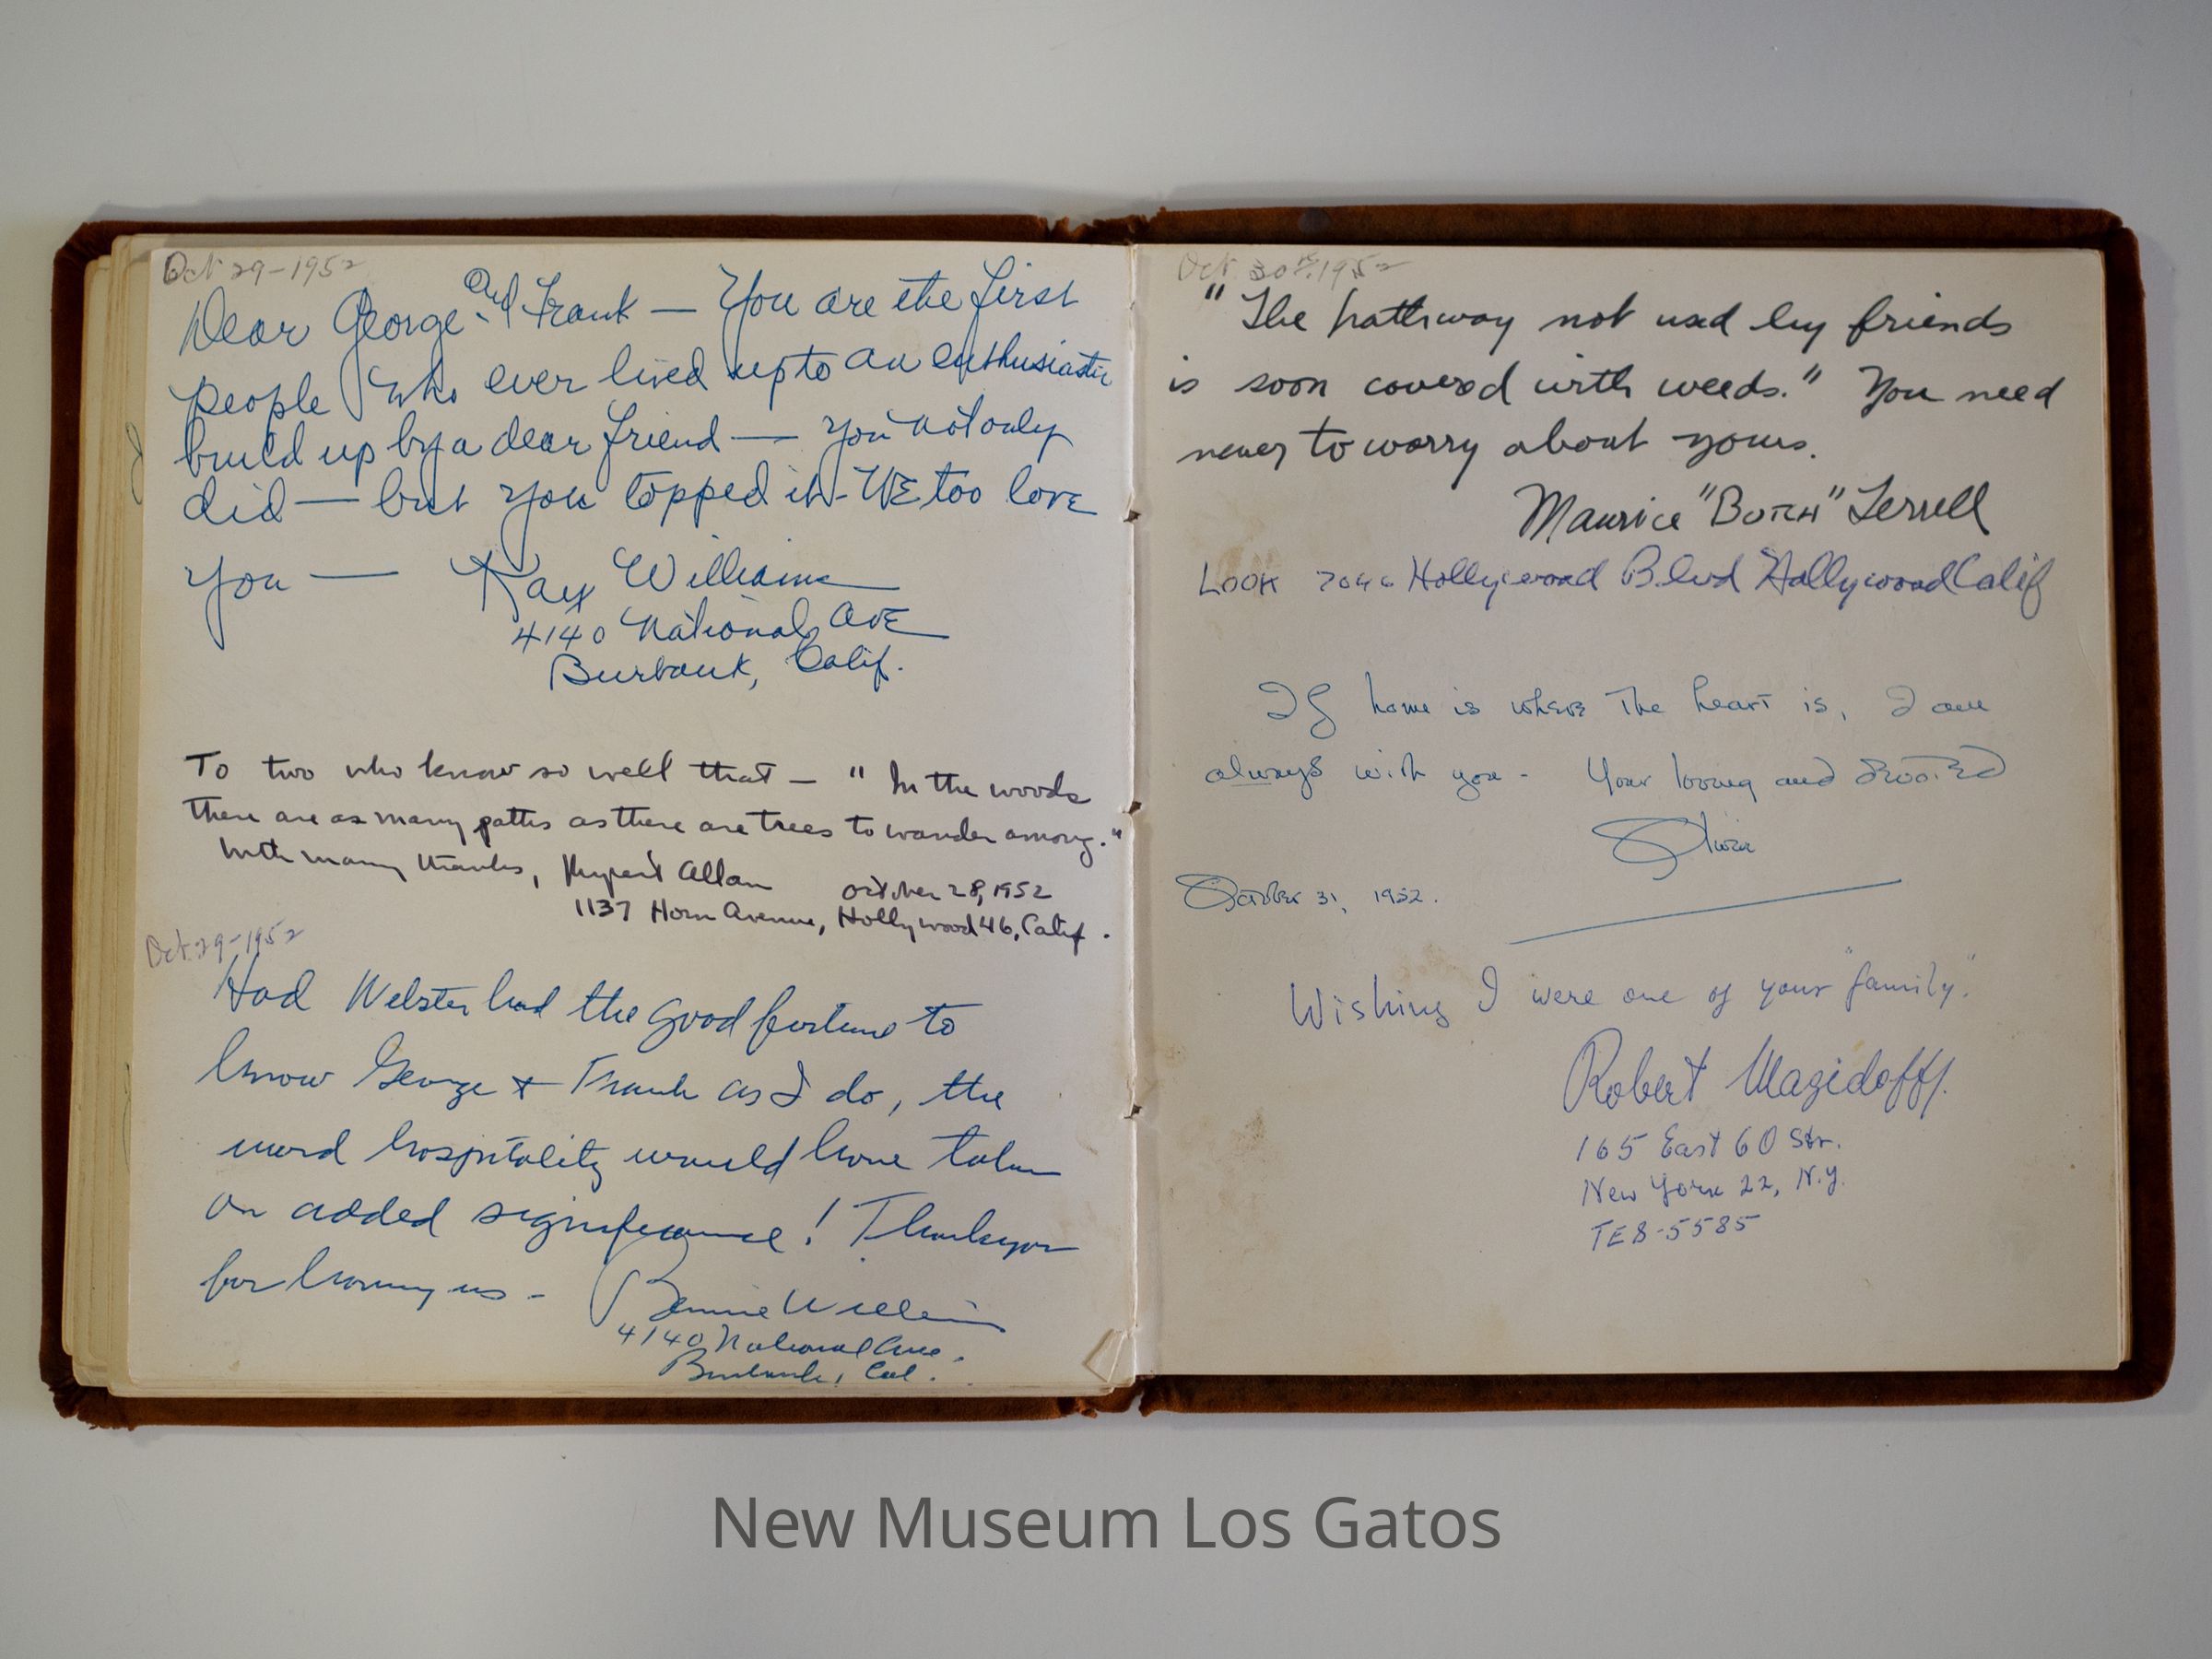 Oct 29-1952
Dear George and Frank — You are the first
people who ever lived up to an enthusiastic
build up by a dear friend — you not only
did — but you topped it - WE too love
you — Kay Williams
4140 National AVE
Burbank, Calif.
To two who know so well that — "In the woods
there are as many paths as there are trees to wander among."
With many thanks, Rupert Allan October 28, 1952
1137 Horn Avenue, Hollywood 46, Calif.
Oct. 29-1952
Had Webster had the good fortune to
know George & Frank as I do, the
word hospitality would have taken
on added significance! Thank you
for having us - Bennie Williams
4140 National Ave.
Burbank, Cal.
Oct. 30th. 1952
"The pathway not used by friends
is soon covered with weeds." You need
never to worry about yours.
Maurice "Butch" Terrell
LOOK 7046 Hollywood Blvd Hollywood Calif
If home is where the heart is, I am
always with you - Your loving and devoted
October 31, 1952.
Wishing I were one of your "family".
Robert Magidoff.
165 East 60 Str.
New York 22, N.Y.
TE8-5585
New Museum Los Gatos